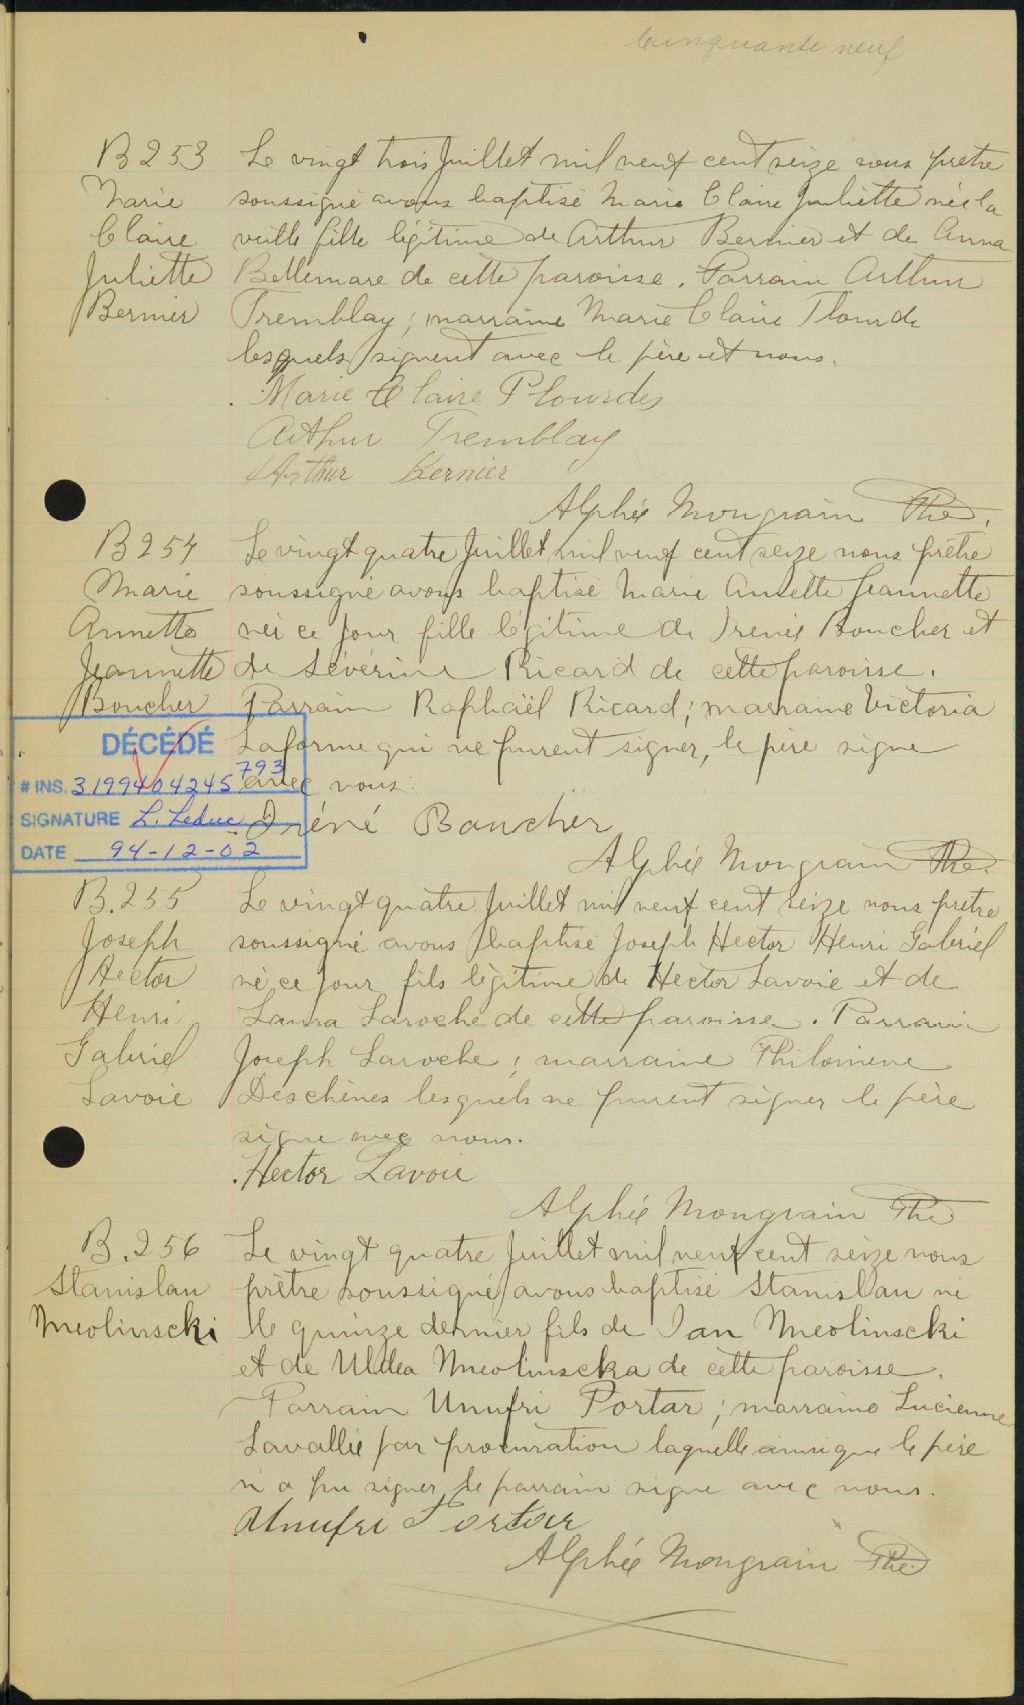 Cinquante neuf
B 253
Marie
Claire
Juliette
Bernier
Le vingt trois Juillet mil neuf cent seize nous prêtre
soussigné avons baptisé Marie Claire Juliette née la
veille fille légitime de Arthur Bernier et de Anna
Bellemare de cette paroisse. Parrain Arthur
Tremblay; marraine Marie Claire Plourde
lesquels signent avec le père et nous.
Marie Claire Plourdes
Arthur Tremblay
Arthur Bernier
Alphée Mongrain Ptre.
B 254
Marie
Annette
Jeannette
Boucher
Le vingt quatre Juillet mil neuf cent seize nous prêtre
soussigné avons baptisé Marie Annette Jeannette
née ce jour fille légitime de Irénée Boucher et
de Sévérine Ricard de cette paroisse.
Parrain Raphaël Ricard; marraine Victoria
Laforme qui ne purent signer, le père signe
avec nous.
DÉCÉDÉ
# INS. 3199404245793
SIGNATURE L. Leduc
DATE 94-12-02
Iréné Boucher
Alphée Mongrain Ptre.
B. 255
Joseph
Hector
Henri
Gabriel
Lavoie
Le vingt quatre Juillet mil neuf cent seize nous prêtre
soussigné avons baptisé Joseph Hector Henri Gabriel
né ce jour fils légitime de Hector Lavoie et de
Laura Laroche de cette paroisse. Parrain
Joseph Laroche; marraine Philomène
Deschènes lesquels ne purent signer le père
signe avec nous.
Hector Lavoie
Alphée Mongrain Ptre
B. 256
Stanislau
Meolinscki
Le vingt quatre Juillet mil neuf cent seize nous
prêtre soussigné avons baptisé Stanislau né
le quinze dernier fils de Jan Meolinscki
et de Uldea Meolinscka de cette paroisse.
Parrain Unufri Portar; marraine Lucienne
Lavallée par procuration laquelle ainsi que le père
n'a pu signer, le parrain signe avec nous.
Unufri Portar
Alphée Mongrain Ptre